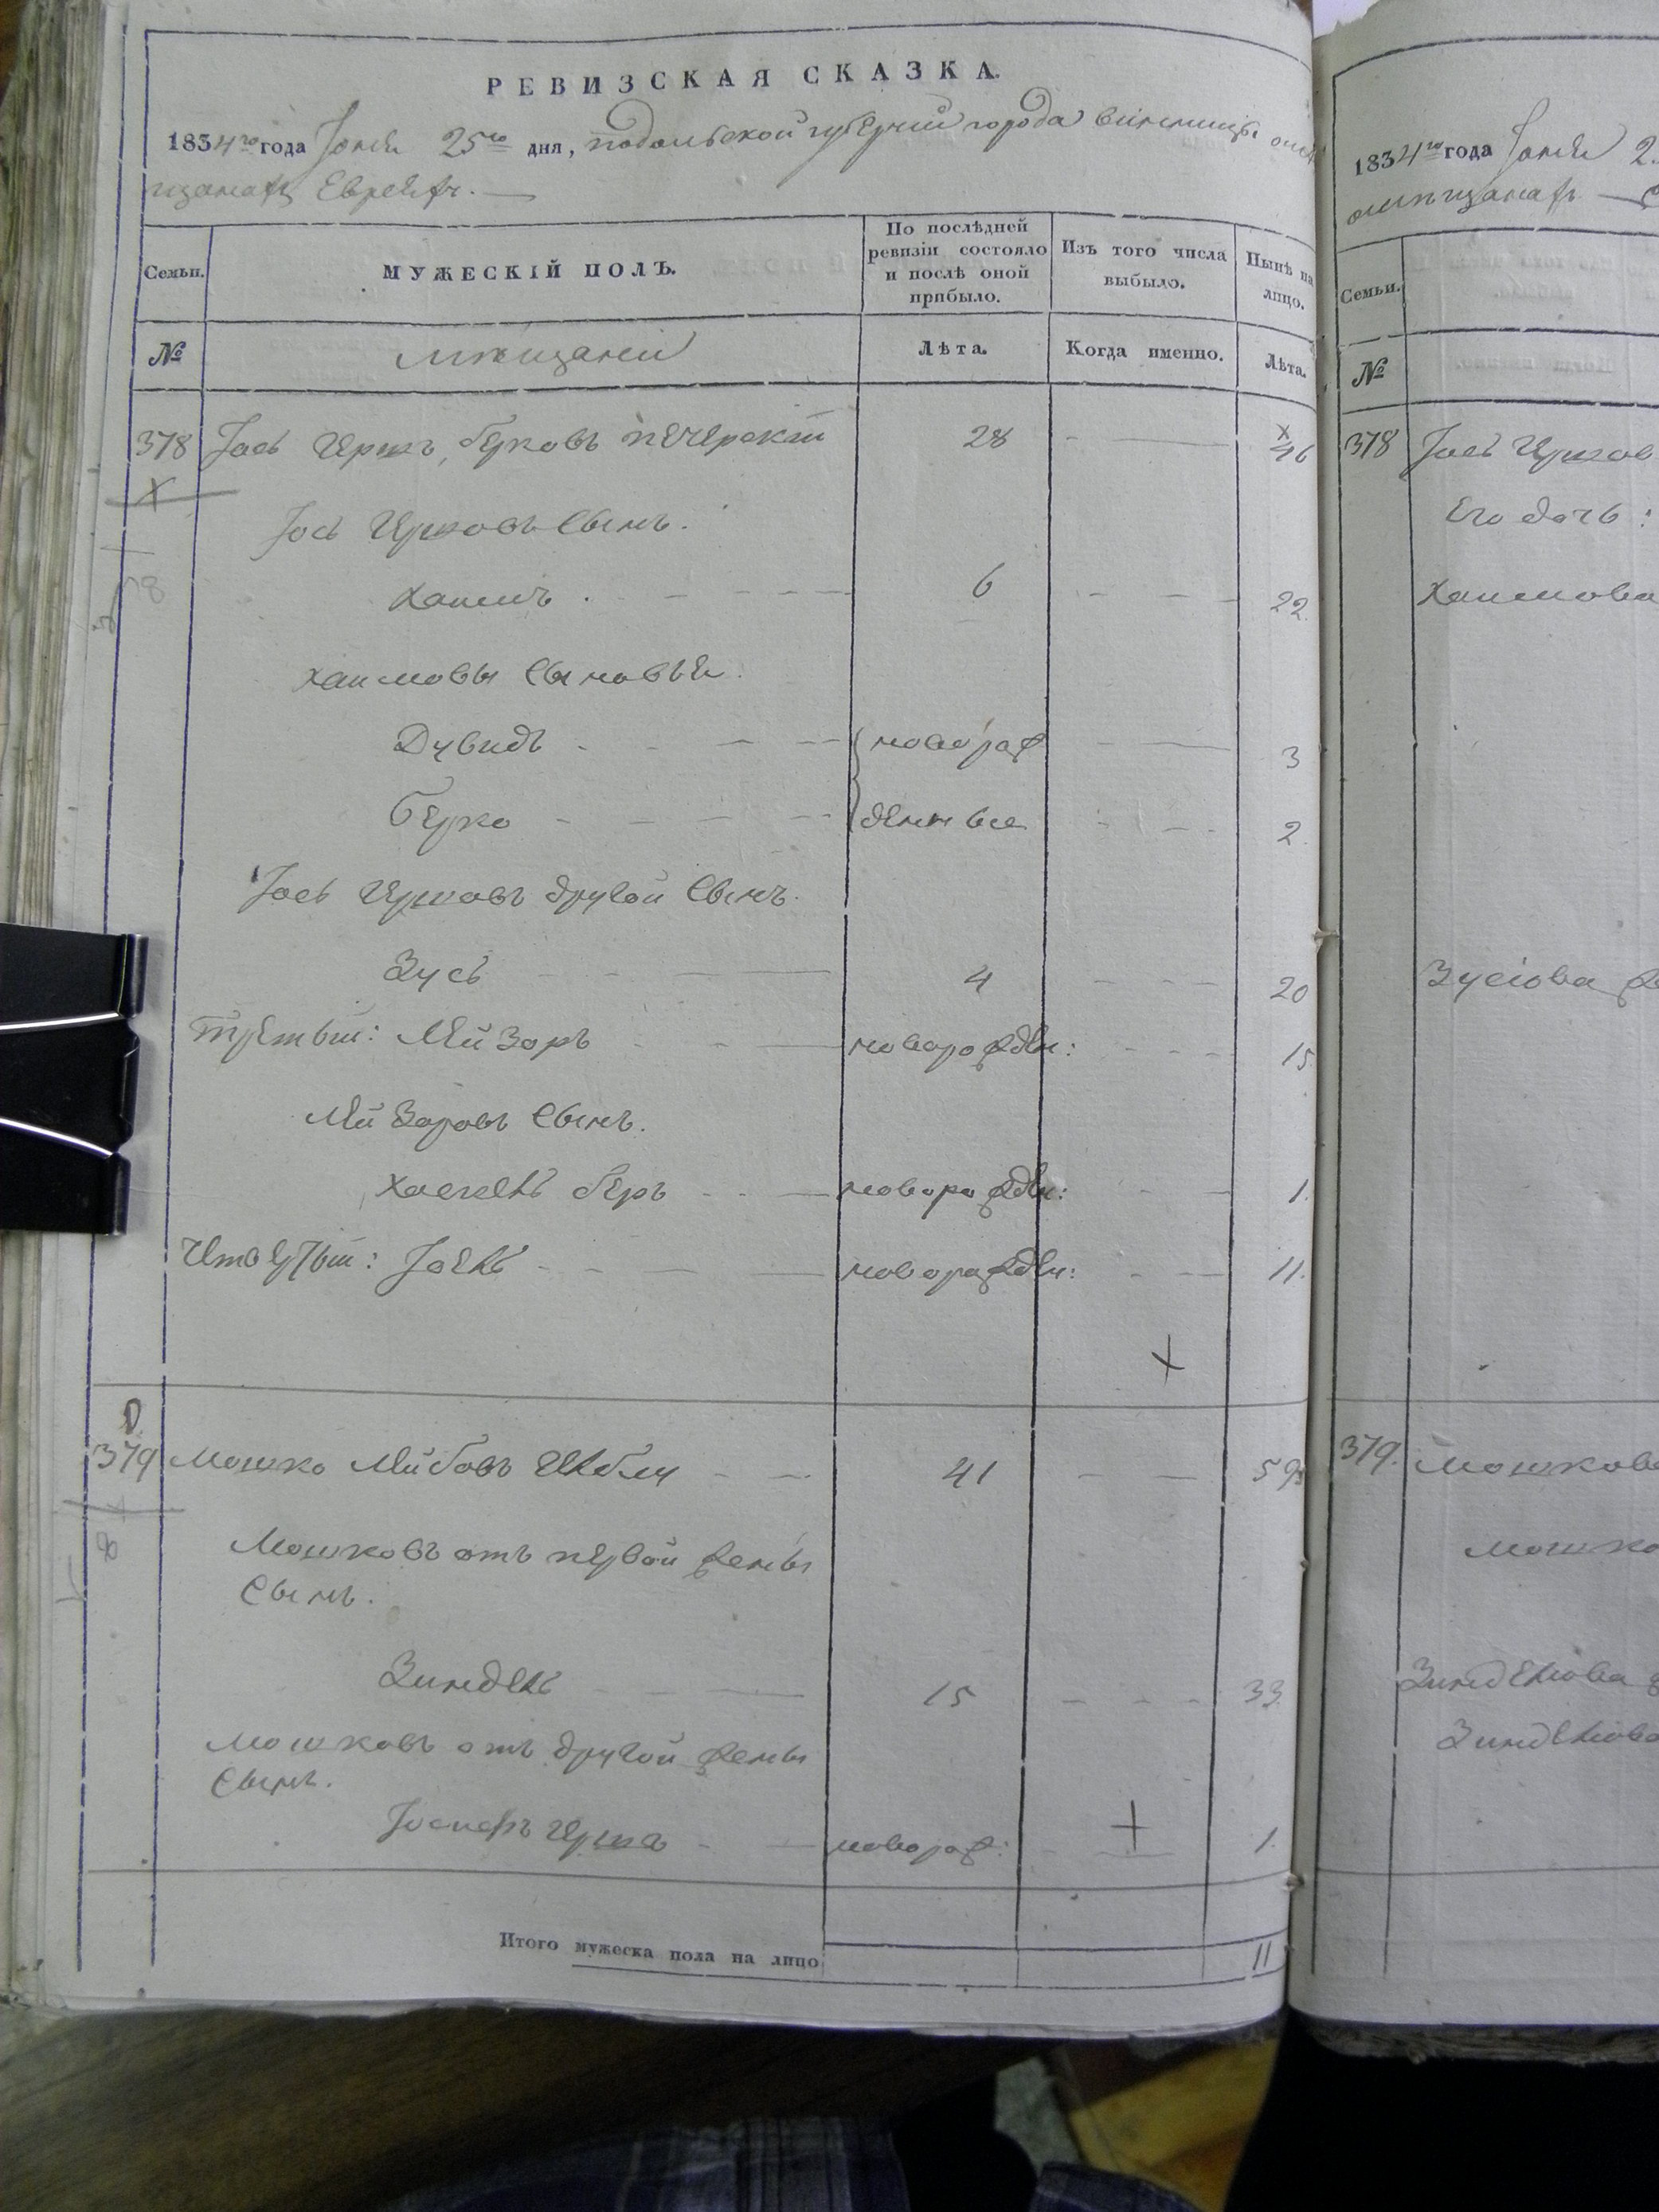 РЕВИЗСКАЯ СКАЗКА.
1834го года Іюня 25го дня, подольской губерніи города винницы о мѣ
щанахъ Евреяхъ.
Семьи.
МУЖЕСКІЙ ПОЛЪ.
По послѣдней ревизіи состояло и послѣ оной прибыло.
Изъ того числа выбыло.
Нынѣ на лицо.
№
мѣщане
Лѣта.
Когда именно.
Лѣта.
378 Іось Гершъ берковъ печерскій 28 46
Іось Гершовъ Сынъ.
Хаимъ 6 22
Хаимовы Сыновья
Дувидъ новорож 3
Берко денные 2
Іось Гершовъ другой Сынъ.
Зусь 4 20
Третьій: Лейзоръ новорожден: 15
Лейзоровъ Сынъ.
Хаскель беръ новорожден: 1
Четвертый: Іоель новорожден: 11
379 Мошко Лейбовъ 41 59
Мошковъ отъ первой жены
Сынъ.
Зиндель 15 33
Мошковъ отъ другой жены
Сынъ.
Іосифъ Гершъ новорож: 1
Итого мужеска пола на лицо 11
1834го года Іюня 2
о мѣщанахъ
Семьи.
№
378 Іось Гершов
Его дочь:
Хаимова
Зусіова ж
379. Мошкова
Мошко
Зинделіова
Зинделіова